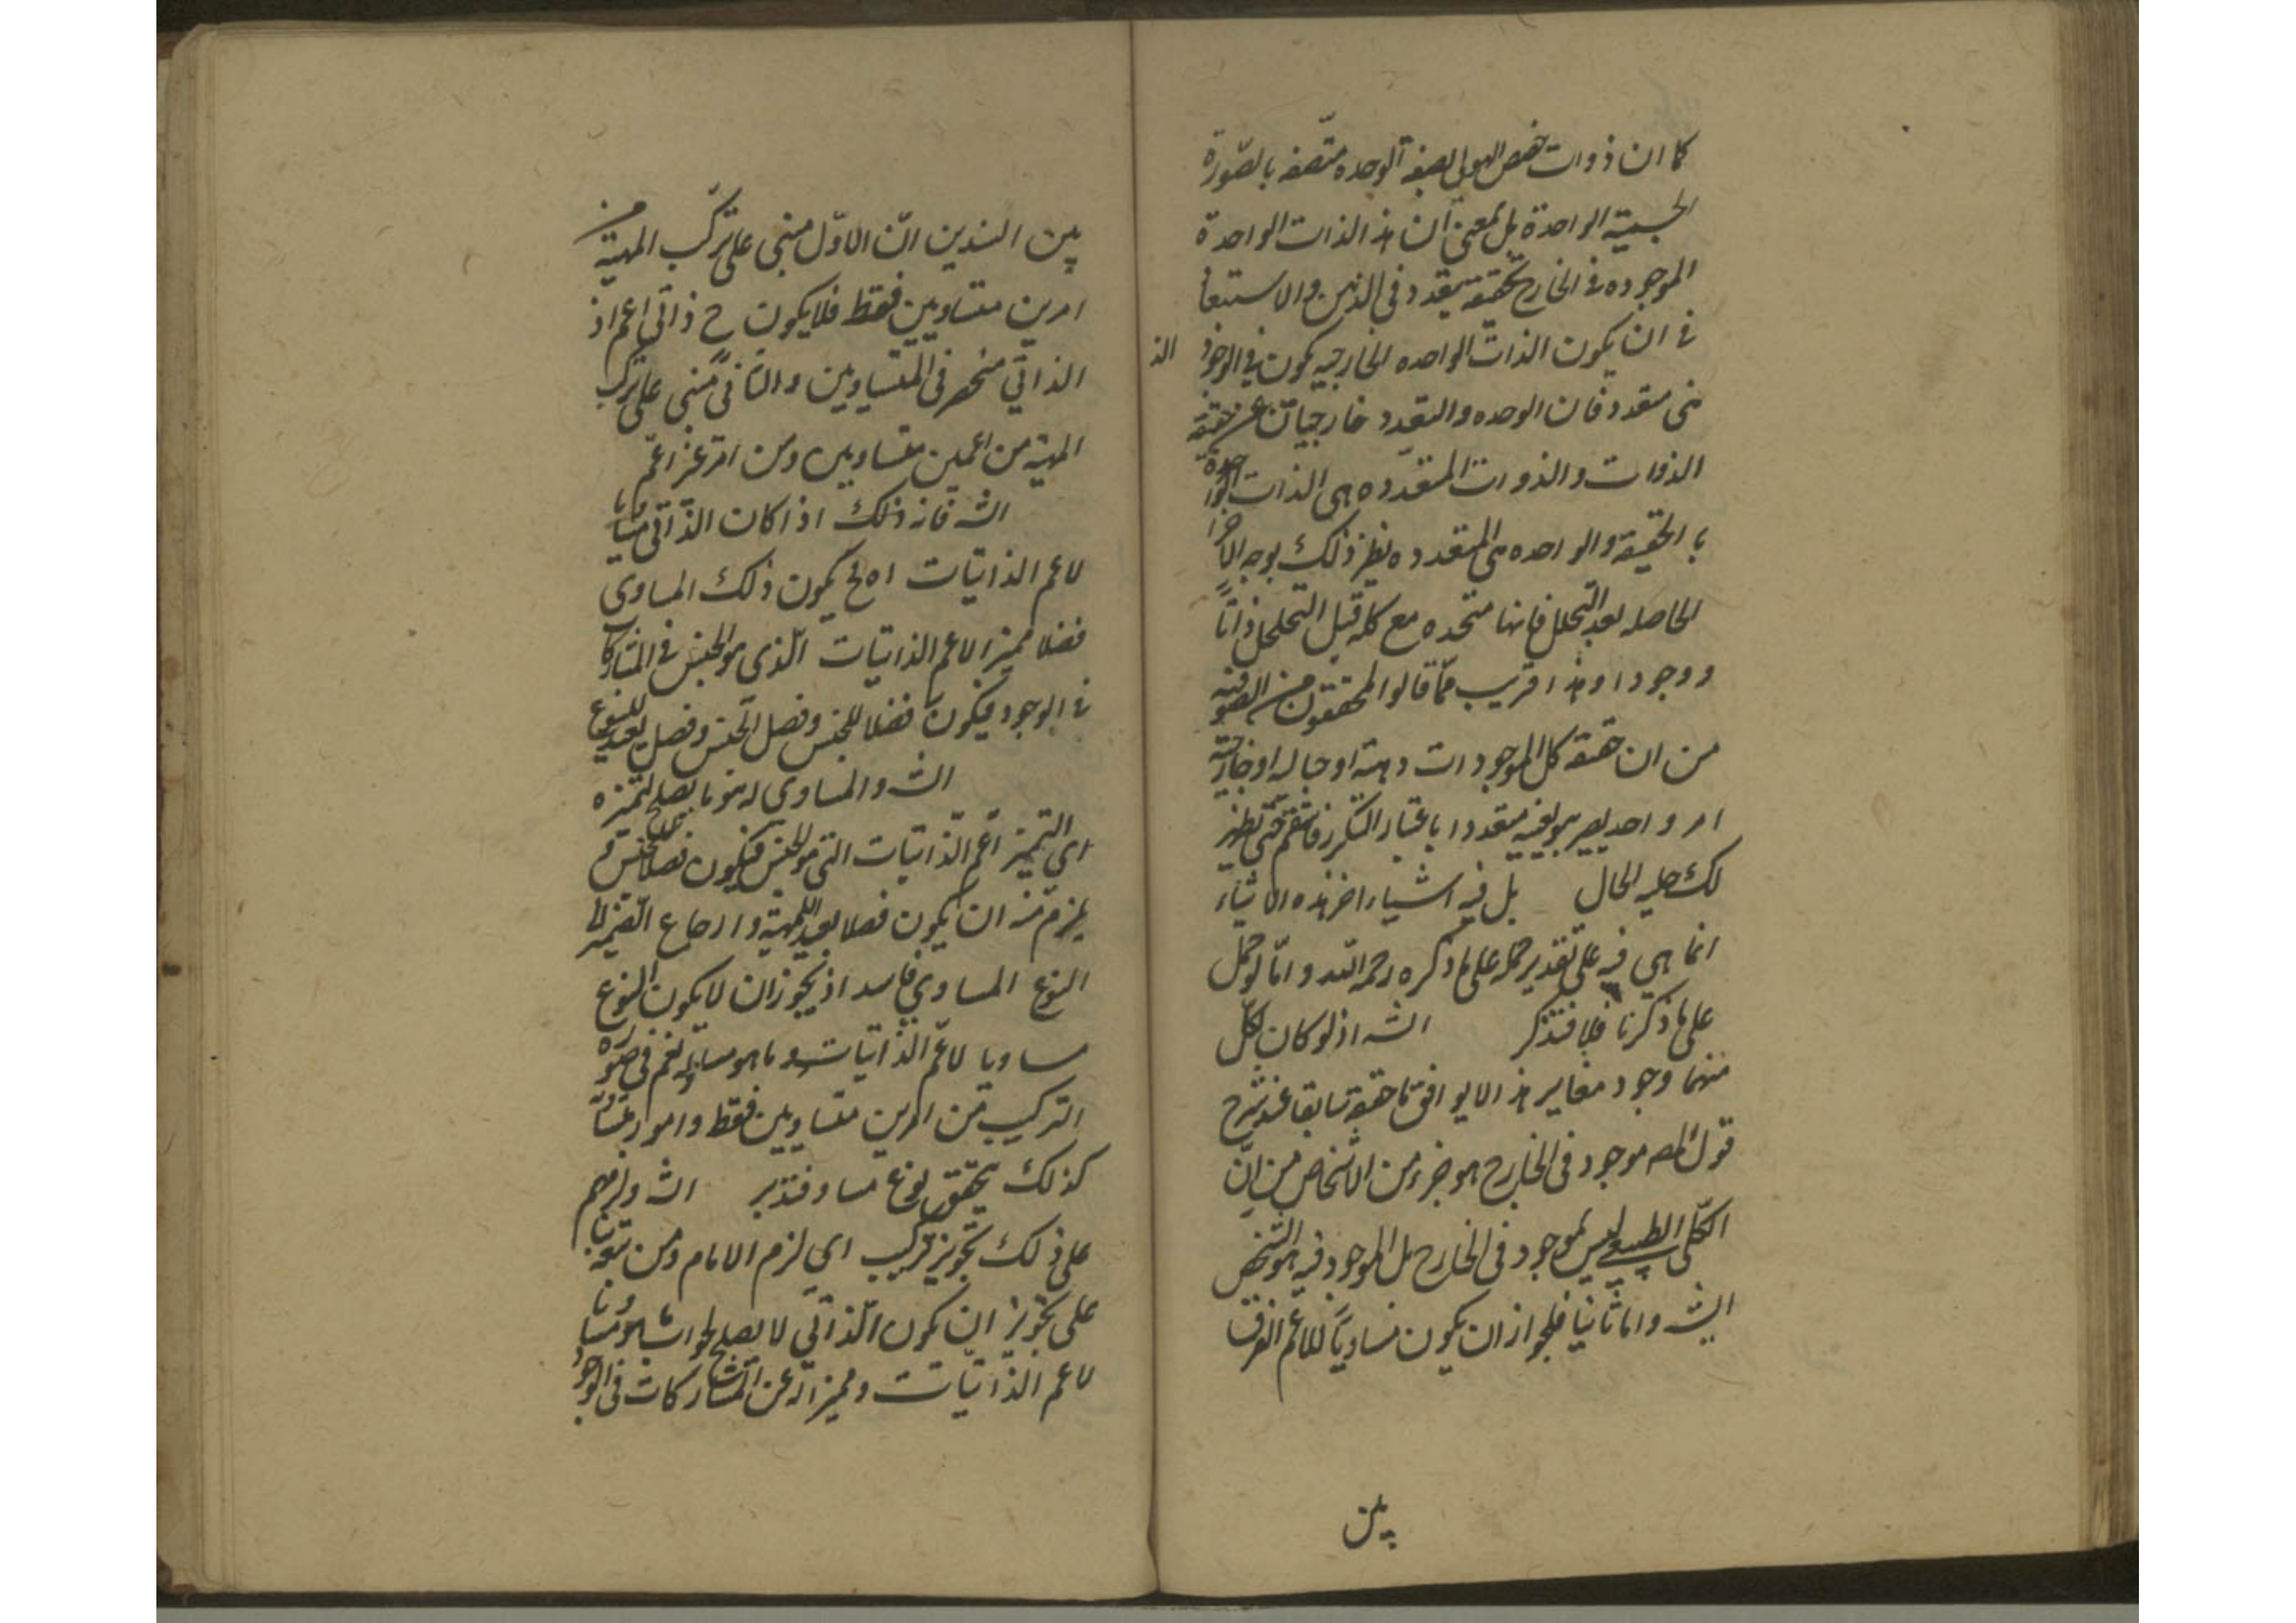 كما ان ذوات حصص الهيولى بصفة الوحده متصفه بالصورة
الجسمية الواحدة بل بمعنى ان هذا الذات الواحدة
الموجوده فى الخارج حقيقة متعدد فى الذهن والاستبعاد
فى ان يكون الذات الواحده الخارجيه يكون فى الوجود الذ
هنى متعدد فان الوحده والتعدد خارجيان عن حقيقة
الذوات والذوات المتعدده هى الذات الواحدة
بالحقيقة والواحده هى المتعدده نظير ذلك بوجه الاجزا
الحاصله بعد التحلل فانها متحده مع كله قبل التحلل ذاتاً
ووجودا وهذا قريب مما قالوا المحققون من الصوفية
من ان حقيقة كل الموجودات ذهنية او خيالية او خارجية
امر واحد يصير هو بعينه متعددا باعتبار التكرر فاستقم حتى يظهر
لك جلية الحال بل فيه اشياء اخر هذه الاشياء
انما هى فيه على تقدير حمله على ما ذكره رحمه الله واما لو حمل
على ما ذكرنا فلا فتذكر الش اذ لو كان لكل
منهما وجود مغاير هذا لا يوافق ما حققه سابقا عند شرح
قول المص موجود فى الخارج هو جزء من الاشخاص من ان
الكلى الطبيعى ليس بموجود فى الخارج بل الموجود فيه هو الشخص
الش واما ثانيا فلجواز ان يكون مساويا للاعم الفرق
بين
بين السندين ان الاول مبنى على تركب المهية من
امرين متساويين فقط فلا يكون ح ذاتى اعم اذ
الذاتى منحصر فى المتساويين والثانى مبنى على تركب
المهية من اعمين متساويين ومن امر غير اعم
الش فانه ذلك اذا كان الذاتى مساويا
لاعم الذاتيات اه ح يكون ذلك المساوى
فصلا مميزا لاعم الذاتيات الذى هو الجنس فى المشاركات
فى الوجود فيكون فصلا للجنس وفصل الجنس فصل بعيد للنوع
الش والمساوى له هو ما يصلح لتميزه
اى التميز اعم الذاتيات التى هو الجنس فيكون فصلا للجنس فـ
يلزم منه ان يكون فصلا بعيدا للمهية وارجاع الضمير الى
النوع المساوى فاسد اذ يجوز ان لا يكون النوع
مساويا لاعم الذاتيات وما هو مساو له نعم فى صورة
التركيب من امرين متساويين فقط وامور متساوية
كذلك يتحقق نوع مساو فتدبر الش ولزمهم
على ذلك تجويز تركيب اى لزم الامام ومن تبعه بنا
على تجويز ان يكون الذاتى لا يصلح لجواب ما هو مساويا
لاعم الذاتيات ومميزا له عن المشاركات فى الوجود